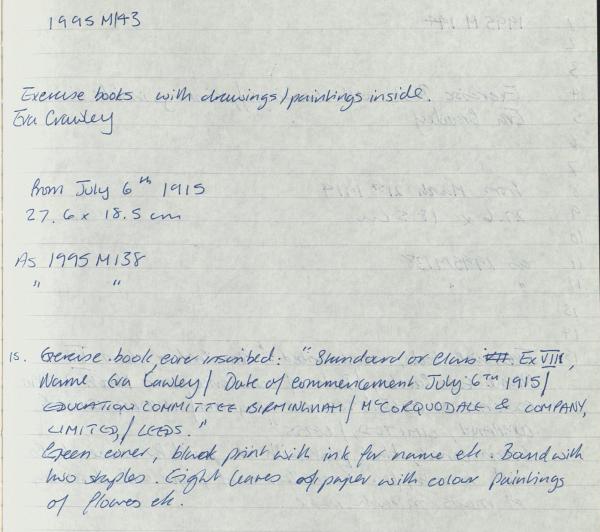 1995 M143
Exercise books with drawings/paintings inside.
Eva Crawley
From July 6th 1915
27.6 x 18.5 cm
As 1995 M138
" "
15. Exercise book, cover inscribed: "Standard or Class Ex VIII,
Name Eva Cawley / Date of commencement July 6TH 1915/
EDUCATION COMMITTEE BIRMINGHAM / McCORQUODALE & COMPANY,
LIMITED, / LEEDS."
Green cover, black print with ink for name etc. Bound with
two staples. Eight leaves of paper with colour paintings
of flowers etc.